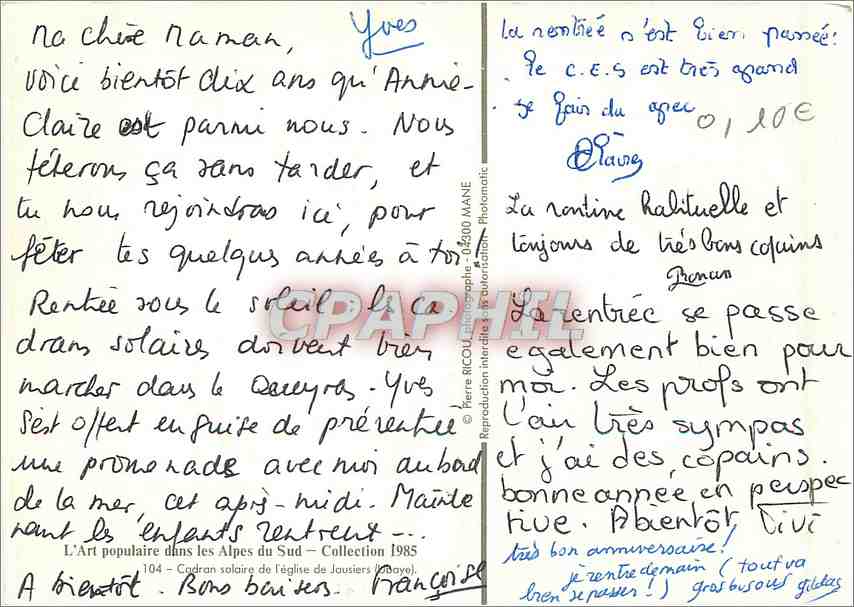 Ma chère Maman,
Yves
voici bientôt dix ans qu'Annie-
Claire est parmi nous. Nous
fêterons ça sans tarder, et
tu nous rejoindras ici, pour
fêter tes quelques années à toi !
Rentrée sous le soleil, les ca
drans solaires doivent bien
marcher dans le Queyras. Yves
s'est offert en guise de prérentrée
une promenade avec moi au bord
de la mer, cet après-midi. Mainte
nant les enfants rentrent ---
L'Art populaire dans les Alpes du Sud – Collection 1985
104 – Cadran solaire de l'église de Jausiers (Ubaye).
A bientôt. Bons baisers. Françoise
© Pierre RICOU, photographe - 04300 MANE
Reproduction interdite sans autorisation - Photomatic
CPAPHIL
La rentrée s'est bien passée !
le C.E.S est très grand
je fais du grec
0,10€
Claire
La routine habituelle et
toujours de très bons copains
Ronan
La rentrée se passe
également bien pour
moi. Les profs ont
l'air très sympas
et j'ai des copains.
bonne année en perspec
tive. A bientôt, Vivi
très bon anniversaire !
je rentre demain (tout va
bien se passer !) gros bisous gildas